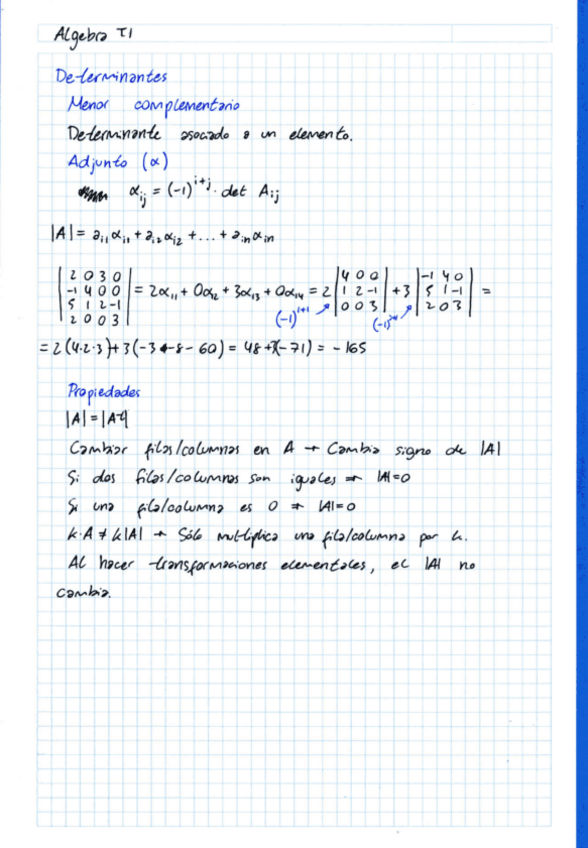 Algebra T1
Determinantes
Menor complementario
Determinante asociado a un elemento.
Adjunto (α)
α_ij = (-1)^(i+j) · det A_ij
|A| = a_i1 α_i1 + a_i2 α_i2 + ... + a_in α_in
| 2 0 3 0 |
| -1 4 0 0 |
| 5 1 2 -1 |
| 2 0 0 3 | = 2α_11 + 0α_12 + 3α_13 + 0α_14 = 2 | 4 0 0 | 1 2 -1 | 0 0 3 | + 3 | -1 4 0 | 5 1 -1 | 2 0 3 | =
(-1)^(1+1)
= 2(4·2·3) + 3(-3 - 8 - 60) = 48 + 3(-71) = -165
Propiedades
|A| = |A^t|
Cambiar filas/columnas en A → Cambia signo de |A|
Si dos filas/columnas son iguales ⇒ |A|=0
Si una fila/columna es 0 ⇒ |A|=0
k·A ≠ k|A| → Sólo multiplica una fila/columna por k.
Al hacer transformaciones elementales, el |A| no
cambia.